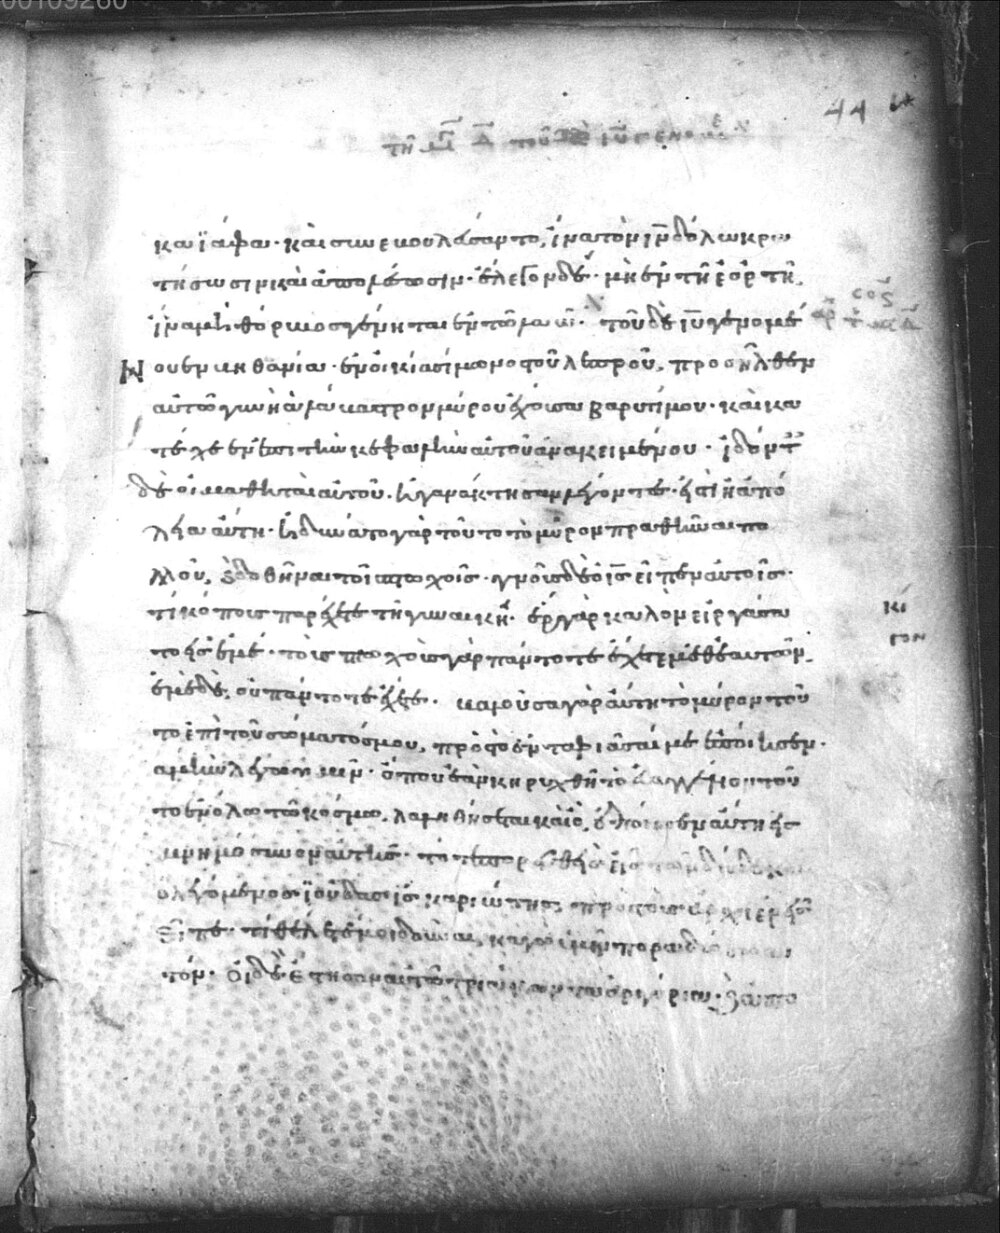 00109260
44
τῆ μ̅ δ̅ τοῦ ιυ γενομε
καϊάφα· καὶ συνεβουλεύσαντο, ἵνα τὸν ιν̅ δόλω κρα
τήσωσιν καὶ ἀποκτείνωσιν· ἔλεγον δέ· μὴ ἐν τῆ ἑορτῆ.
ἵνα μὴ θόρυβος γένηται ἐν τῶ λαῶ· τοῦ δὲ ιυ̅ γενομέ
νου ἐν βηθανία· ἐν οἰκία σίμωνος τοῦ λεπροῦ, προσῆλθεν
αὐτῶ γυνὴ ἀλάβαστρον μύρου ἔχουσα βαρυτίμου· καὶ κα
τέχεεν ἐπὶ τὴν κεφαλὴν αὐτοῦ ἀνακειμένου· ἰδόντες
δὲ οἱ μαθηταὶ αὐτοῦ. ἠγανάκτησαν λέγοντες· εἰς τί ἡ ἀπό
λεια αὕτη· ἠδύνατο γὰρ τοῦτο τὸ μύρον πραθῆναι πο
λλοῦ, δοθῆναι τοῖς πτωχοῖς· γνοὺς δὲ ὁ ις̅ εἶπεν αὐτοῖς·
τί κόπους παρέχετε τῆ γυναικί· ἔργον γὰρ καλὸν εἰργάσα
το εἰς ἐμέ· τοὺς πτωχοὺς γὰρ πάντοτε ἔχετε μεθ' ἑαυτῶν.
ἐμὲ δὲ, οὐ πάντοτε ἔχετε· βαλοῦσα γὰρ αὕτη τὸ μύρον τοῦ
το ἐπὶ τοῦ σώματός μου, πρὸς τὸ ἐνταφιάσαι με ἐποίησεν·
ἀμὴν λέγω ὑμῖν· ὅπου ἐὰν κηρυχθῆ τὸ εὐαγγέλιον τοῦ
το ἐν ὅλω τῶ κόσμω, λαληθήσεται καὶ ὃ ἐποίησεν αὕτη εἰς
μνημόσυνον αὐτῆς· τότε πορευθεὶς εἷς τῶν δώδεκα
ὁ λεγόμενος ἰούδας ἰσκαριώτης, πρὸς τοὺς ἀρχιερεῖς
εἶπε· τί θέλετέ μοι δοῦναι, κἀγὼ ὑμῖν παραδώσω αὐ
τόν· οἱ δὲ ἔστησαν αὐτῶ τριάκοντα ἀργύρια· καὶ ἀπὸ